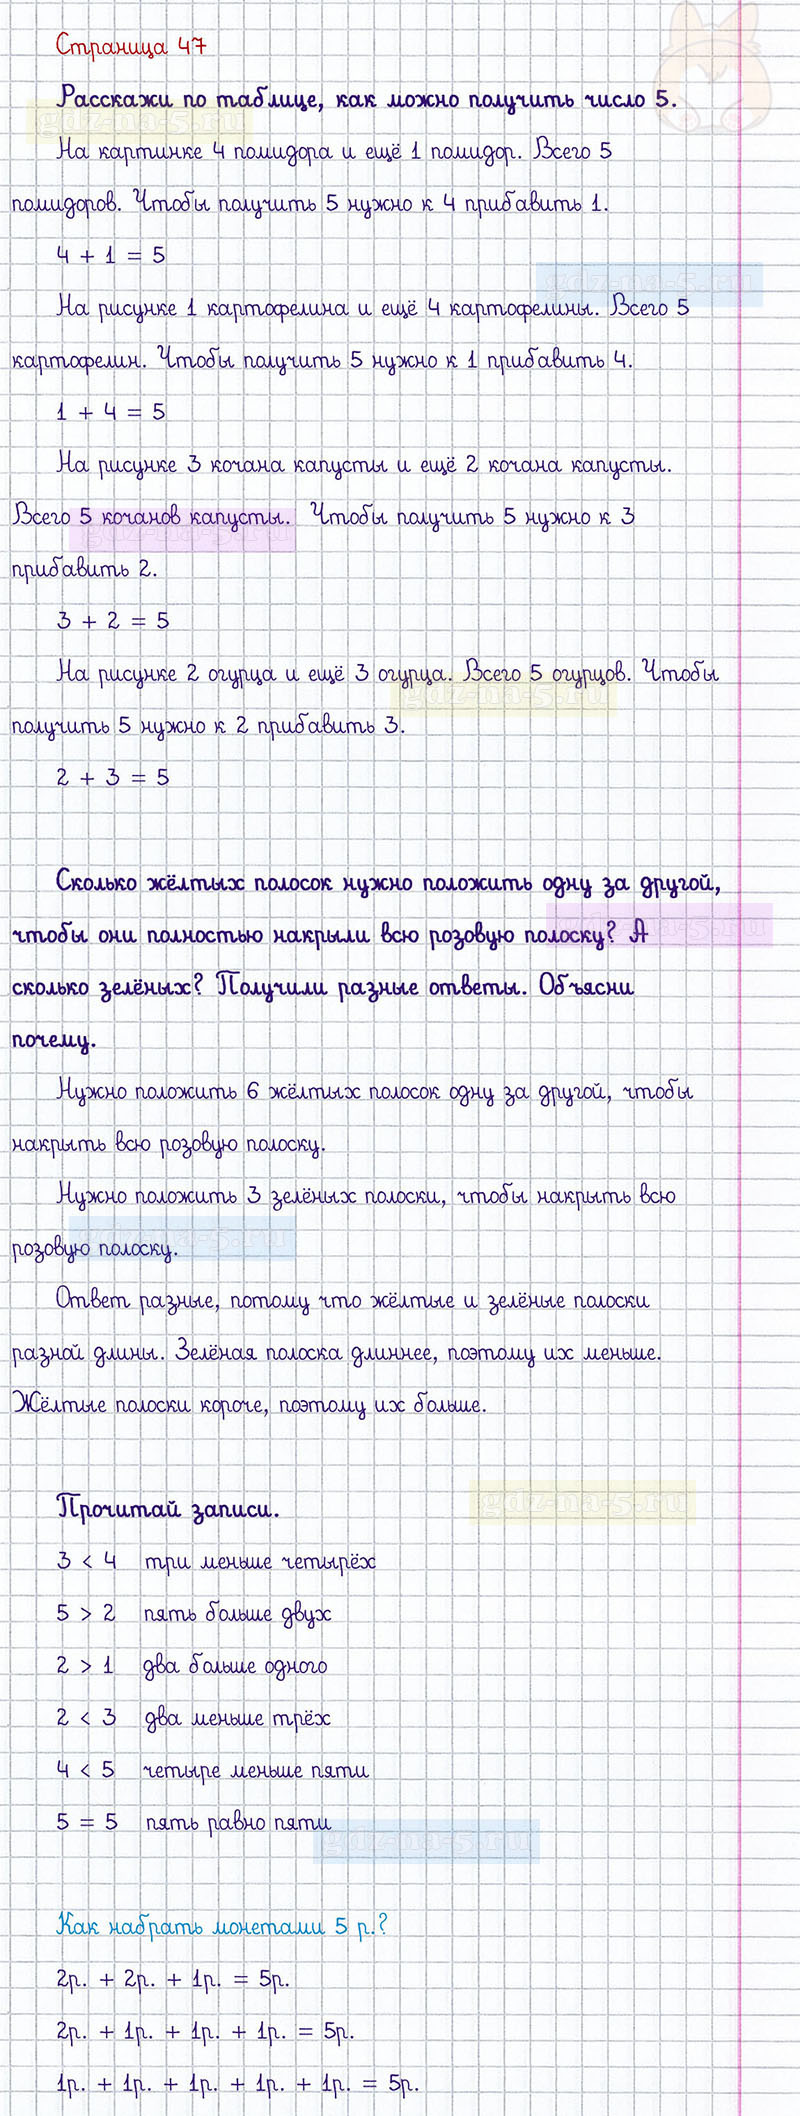 Страница 47
Расскажи по таблице, как можно получить число 5.
gdz-na-5.ru
На картинке 4 помидора и ещё 1 помидор. Всего 5
помидоров. Чтобы получить 5 нужно к 4 прибавить 1.
4 + 1 = 5
gdz-na-5.ru
На рисунке 1 картофелина и ещё 4 картофелины. Всего 5
картофелин. Чтобы получить 5 нужно к 1 прибавить 4.
1 + 4 = 5
На рисунке 3 кочана капусты и ещё 2 кочана капусты.
Всего 5 кочанов капусты. Чтобы получить 5 нужно к 3
gdz-na-5.ru
прибавить 2.
3 + 2 = 5
На рисунке 2 огурца и ещё 3 огурца. Всего 5 огурцов. Чтобы
gdz-na-5.ru
получить 5 нужно к 2 прибавить 3.
2 + 3 = 5
Сколько жёлтых полосок нужно положить одну за другой,
gdz-na-5.ru
чтобы они полностью накрыли всю розовую полоску? А
сколько зелёных? Получили разные ответы. Объясни
почему.
Нужно положить 6 жёлтых полосок одну за другой, чтобы
накрыть всю розовую полоску.
Нужно положить 3 зелёных полоски, чтобы накрыть всю
розовую полоску.
gdz-na-5.ru
Ответ разные, потому что жёлтые и зелёные полоски
разной длины. Зелёная полоска длиннее, поэтому их меньше.
Жёлтые полоски короче, поэтому их больше.
gdz-na-5.ru
Прочитай записи.
3 < 4 три меньше четырёх
5 > 2 пять больше двух
2 > 1 два больше одного
2 < 3 два меньше трёх
4 < 5 четыре меньше пяти
5 = 5 пять равно пяти
gdz-na-5.ru
Как набрать монетами 5 р.?
2р. + 2р. + 1р. = 5р.
2р. + 1р. + 1р. + 1р. = 5р.
1р. + 1р. + 1р. + 1р. + 1р. = 5р.